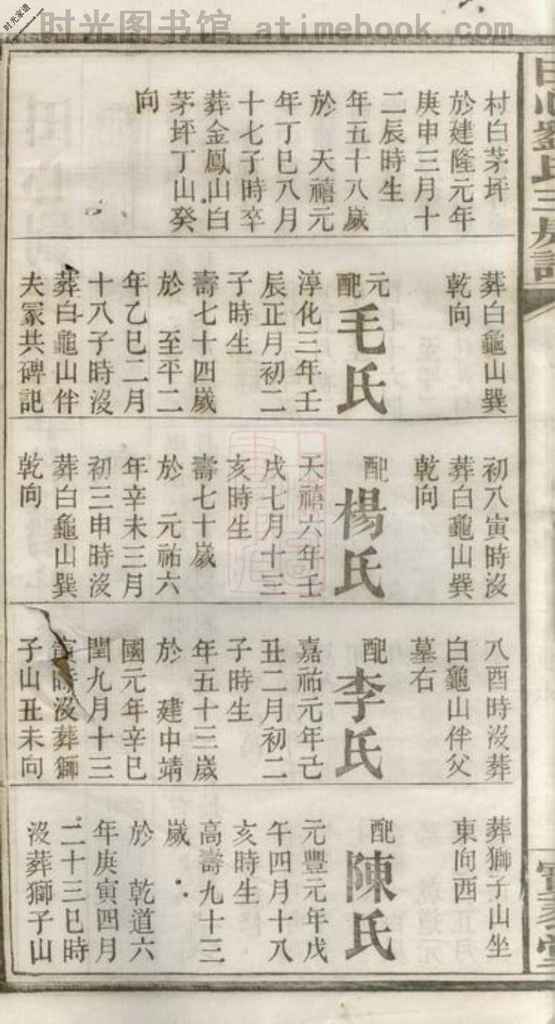 时光家谱
时光图书馆 www.atimebook.com
村白茅坪
於建隆元年
庚申三月十
二辰時生
年五十八歲
於 天禧元
年丁巳八月
十七子時卒
葬金鳳山白
茅坪丁山癸
向
葬白龜山巽
乾向
元
配毛氏
淳化三年壬
辰正月初二
子時生
壽七十四歲
於 至平二
年乙巳二月
十八子時沒
葬白龜山伴
夫冢共碑記
初八寅時沒
葬白龜山巽
乾向
配楊氏
天禧六年壬
戌七月十三
亥時生
壽七十歲
於 元祐六
年辛未三月
初三申時沒
葬白龜山巽
乾向
八酉時沒葬
白龜山伴父
墓右
配李氏
嘉祐元年己
丑二月初二
子時生
年五十三歲
於 建中靖
國元年辛巳
閏九月十三
寅時沒葬獅
子山丑未向
葬獅子山坐
東向西
配陳氏
元豐元年戊
午四月十八
亥時生
高壽九十三
歲
於 乾道六
年庚寅四月
二十三巳時
沒葬獅子山